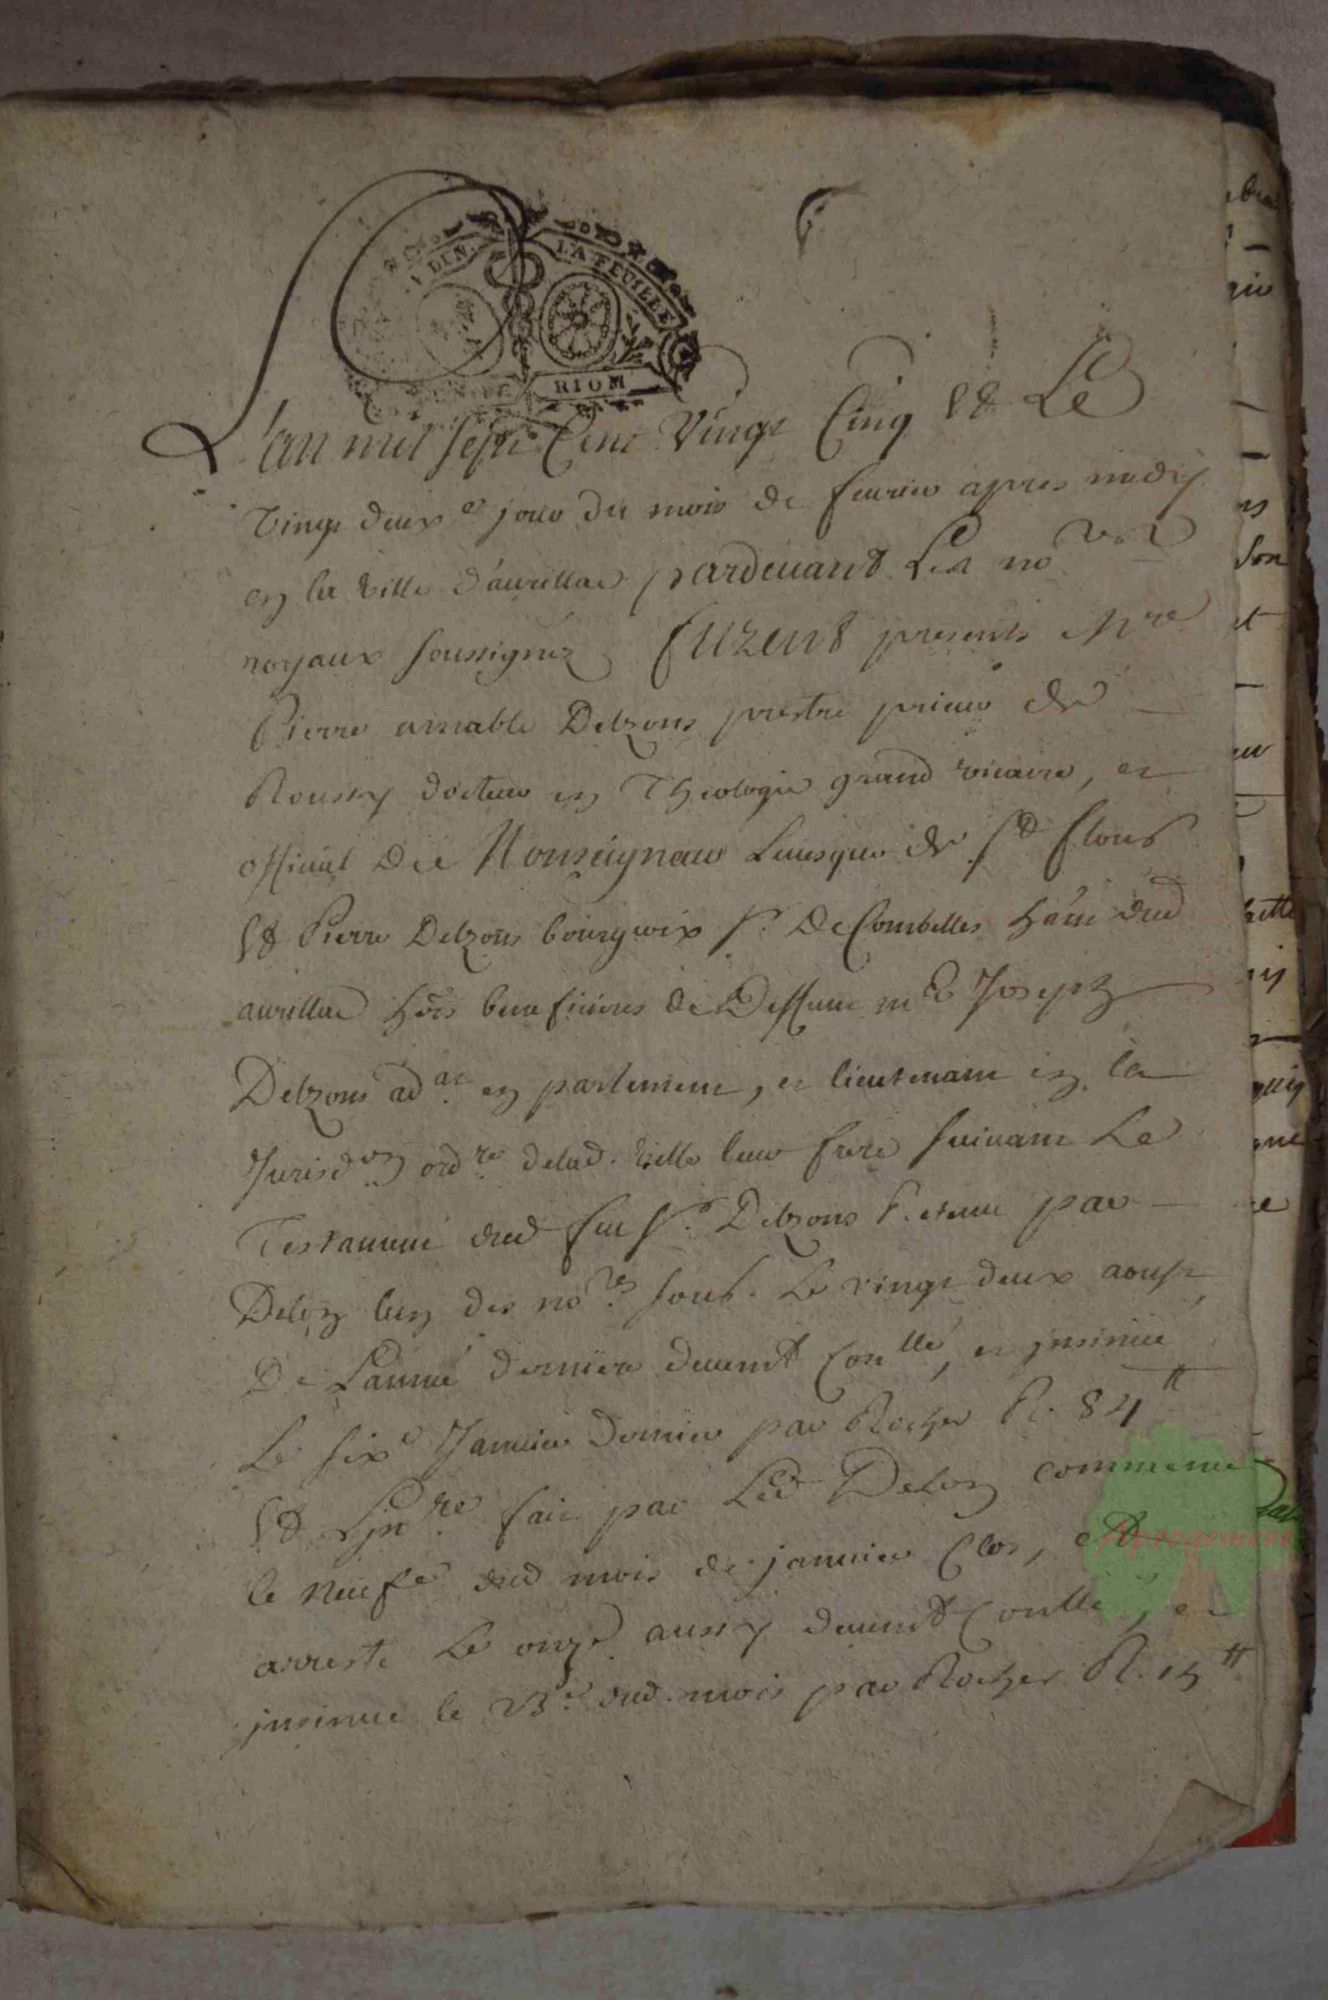 LA FEUILLE
RIOM
L'an mil sept Cent Vingt Cinq et Le
vingt deux e jour du mois de feurier apres midy
en la ville d'aurillac pardevant Les no res
royaux soussignez furent presents Mre
Pierre amable Delzons prestre prieur de
Roussy docteur en Theologie grand vicaire, et
official de Monseigneur Leuesque de St flour
et Pierre Delzons bourgeois Sr De Combelles hãnt dud
aurillac hers beneficiers de Deffunt me Joseph
Delzons ad at en parlement, et lieutenant en la
Jurisd on ord re delad. ville leur frere suivant Le
Testament dud feu Sr. Delzons R. et tenu par
Delom lun des no res sous. Le vingt deux aoust
De Lannée derniere duemt Con llé, et insinué
Le six e Janvier dernier par Rocher R. 84 tt
et Linv re fait par Led Delom commencé
le neuf e dud mois de janvier Clos, et
arresté Le onze aussy duemt Conllé, et
insinué le 23 e dud. mois par Rocher R. 15 tt
Aprogemere